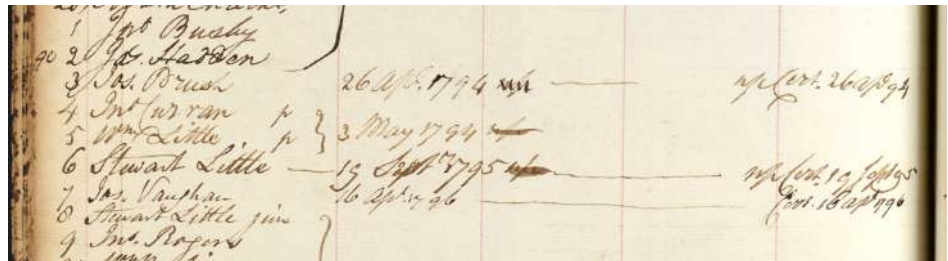 1 Jno. Busby
90 2 Jas. Hadden
3 Jos. Brush 26 Apl. 1794 np np Cert. 26 Apl 94
4 Jno. Curran p
5 Wm. Little p 3 May 1794
6 Stewart Little 19 Sept. 1795 np Cert. 19 Sept 95
7 Jas. Vaughan 16 Apl. 1796 Cert. 16 Apl 1796
8 Stewart Little jun
9 Jno. Rogers